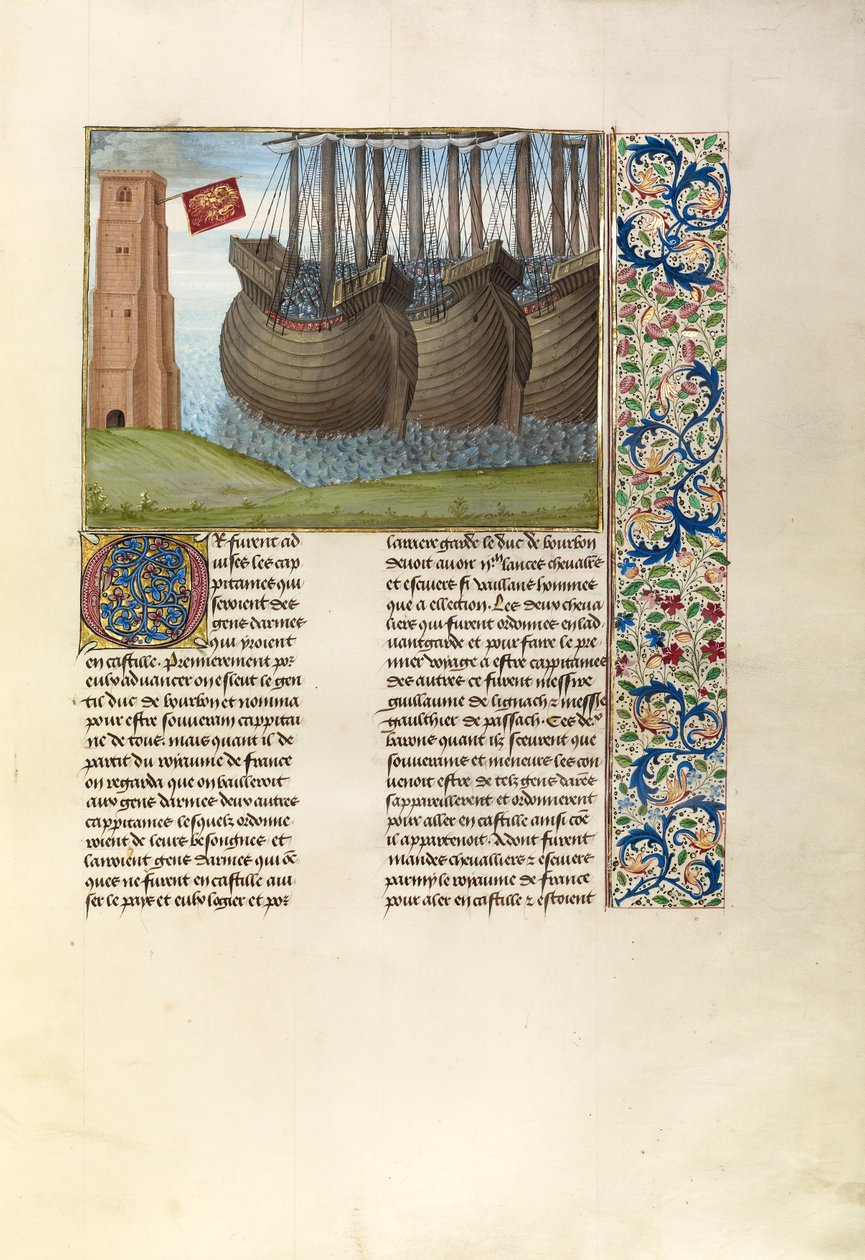 Or furent ad
uises les cap
pitaines qui
seroient des
gens darmes
qui yroient
en castille. Premierement por
eulx aduancer on esleut le gen
til duc de bourbon et nomma
pour estre souuerain cappitai
ne de tous. mais quant il de
partit du royaume de france
on regarda que on bailleroit
aux gens darmes deux autres
cappitaines lesquelz ordonne
roient de leurs besongnes et
lairoient gens darmes qui
ques ne furent en castille aui
ser le pays et eulx logier et por
larriere garde le duc de bourbon
deuoit auoir lances cheualrs
et escuiers si vaillans hommes
que a ellection. Les deux cheua
liers qui furent ordonnes en lad
uantgarde et pour faire le pre
mier voyage a estre cappitaines
des autres ce furent messire
guillaume de lignach et messire
gaulthier de passach. Ces de
barons quant ilz sceurent que
souuerains et meneurs les con
uenoit estre de telz gens darmes
sappareillerent et ordonnerent
pour aller en castille ainsi come
il appartenoit. Adont furent
mandes cheualliers et escuiers
parmy le royaume de france
pour aler en castille et estoient